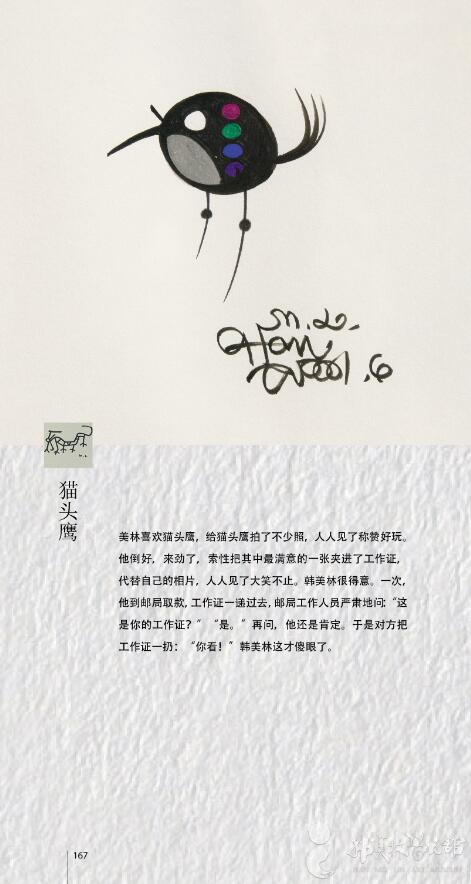 猫头鹰
美林喜欢猫头鹰，给猫头鹰拍了不少照，人人见了称赞好玩。
他倒好，来劲了，索性把其中最满意的一张夹进了工作证，
代替自己的相片，人人见了大笑不止。韩美林很得意。一次，
他到邮局取款，工作证一递过去，邮局工作人员严肃地问：“这
是你的工作证？”“是。”再问，他还是肯定。于是对方把
工作证一扔：“你看！”韩美林这才傻眼了。
167